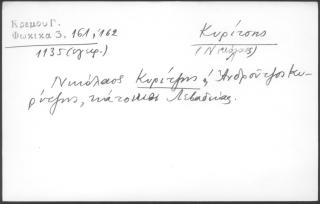 Κρεμου Γ.
Φωκικά 3. 161, 162
1135 (εγκρ.)
Κυρίτσης
(Νικόλαος)
Νικόλαος Κυρίτζης ή Ανδρούτζος Κυ-
ρίτζης, κάτοικος Λεβαδείας.